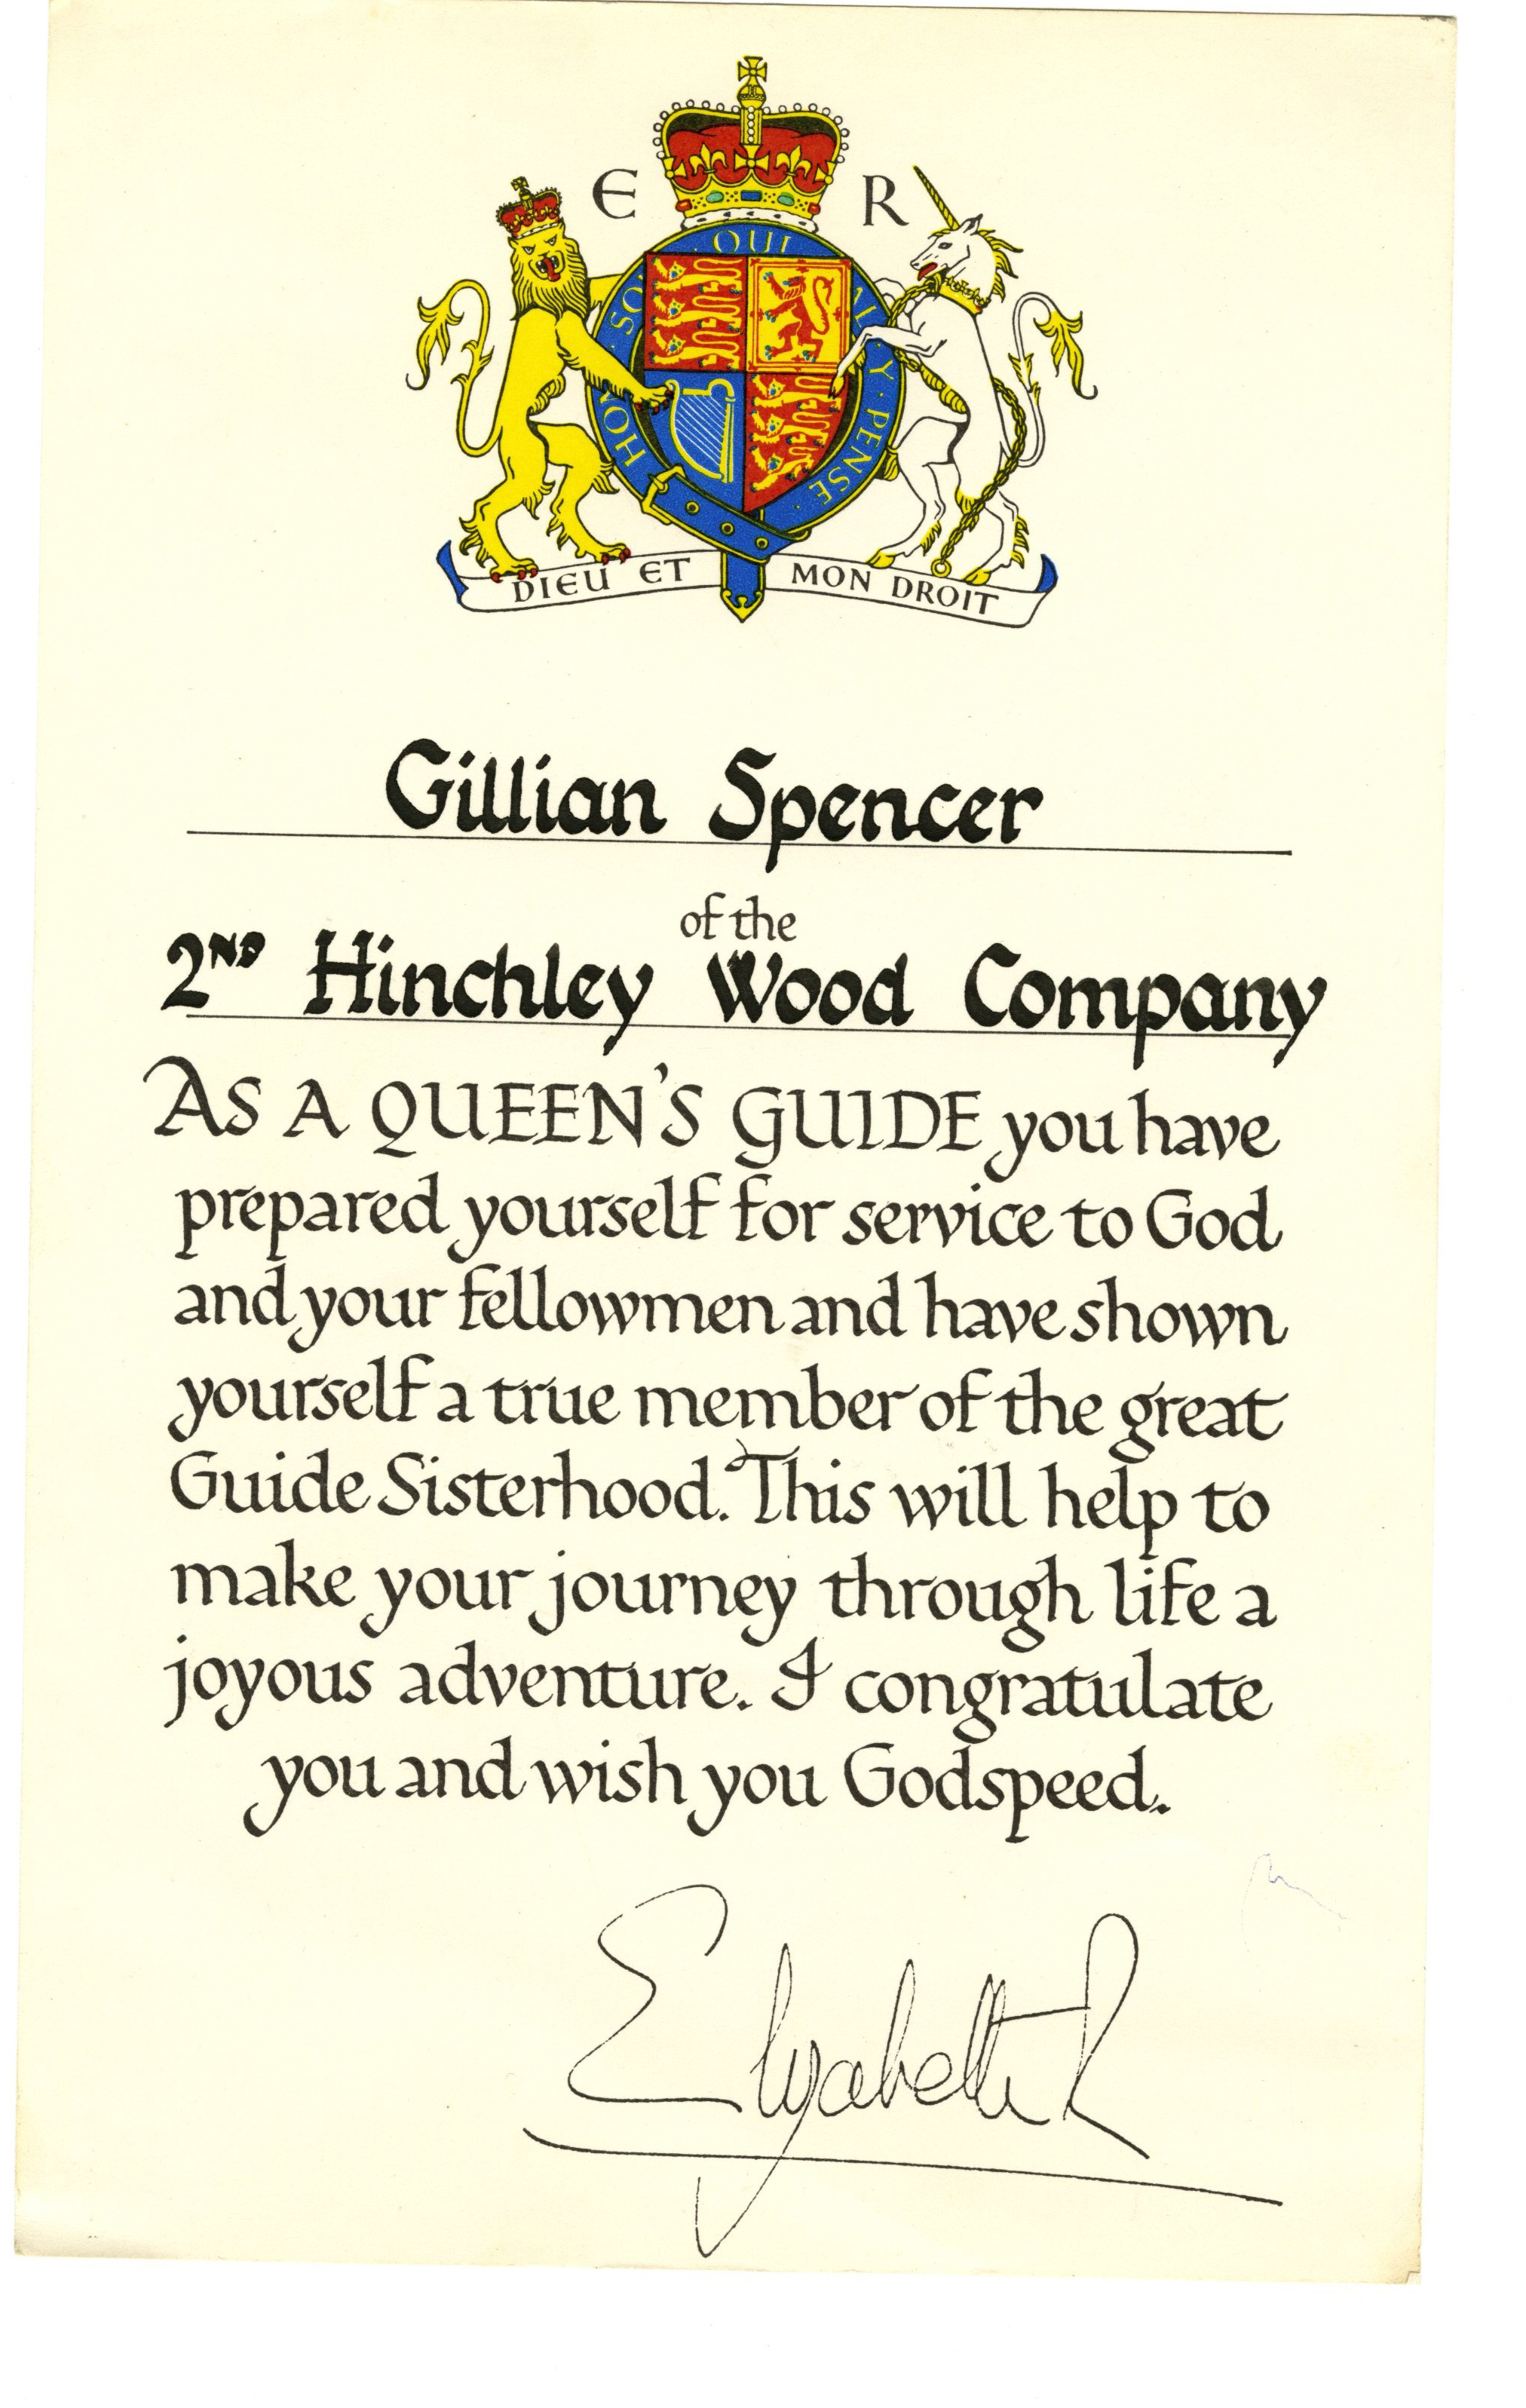 E R
HON SO QUI AL Y PENSE
DIEU ET MON DROIT
Gillian Spencer
of the
2ND Hinchley Wood Company
AS A QUEEN'S GUIDE you have
prepared yourself for service to God
and your fellowmen and have shown
yourself a true member of the great
Guide Sisterhood. This will help to
make your journey through life a
joyous adventure. I congratulate
you and wish you Godspeed.
Elizabeth R